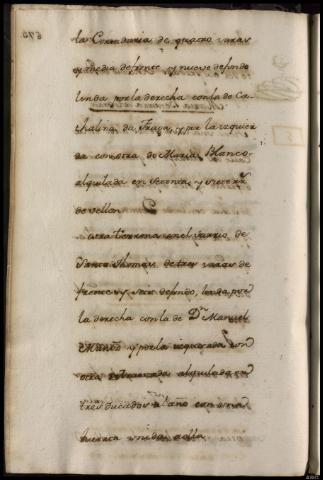 la Corredaria de quatro varas
y media de frente y nueve de fondo
linda por la derecha con la de Ca-
thalina da Fraga, y por la izquier
da con otra de Maria Blanco
alquilada en sesenta, y seis rr.s
de vellon
otra terrena en el varrio de
Santo Thomas de tres varas de
frente y seis de fondo, linda por
la derecha con la de Dn. Manuel
y por la izquierda con
otra alquilada en
tres ducados al año con una
huerta unida a ella